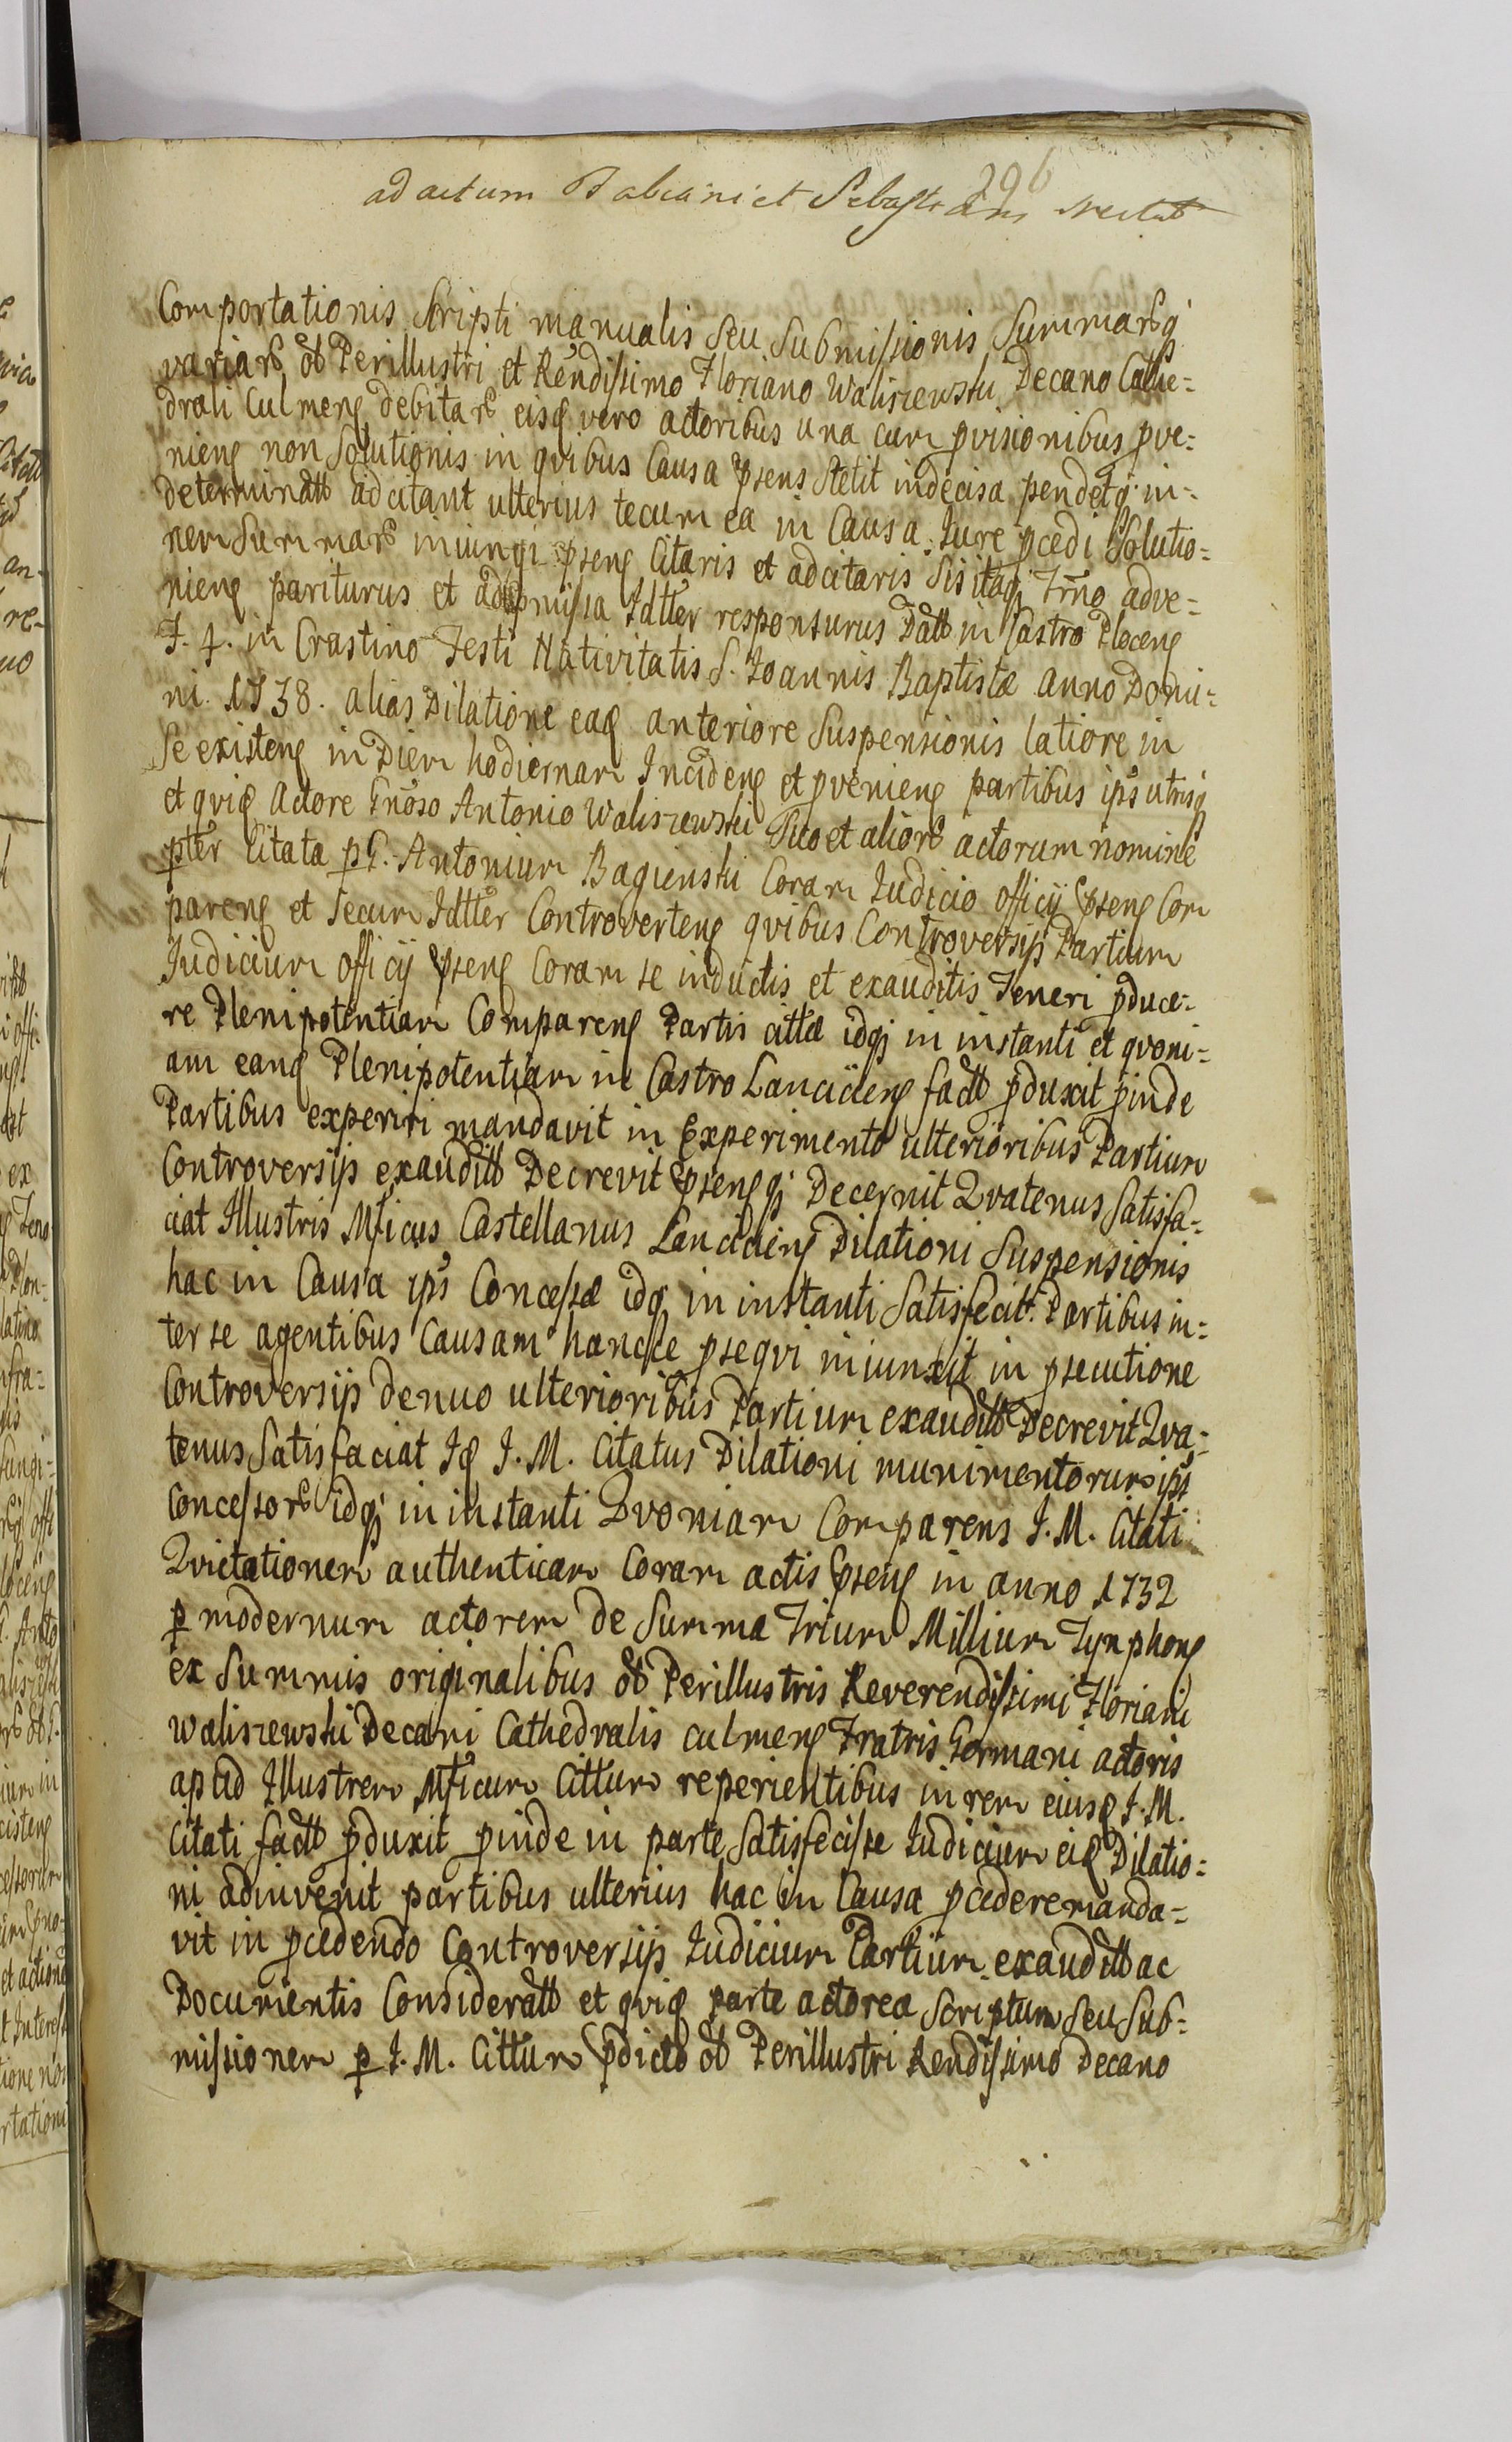 296
ad actum Fabiani et Sebastiani
Comportationis Scripti manualis Seu Submissionis Summarꝫ qꝫ
variarꝫ ob Perillustri et Rendissimo Floriano Waliszewski Decano Cathe=
drali Culmenẽ debitarꝫ eisq vero actoribus una cum pvisionibus pve=
nienẽ non Solutionis in qvibus Causa psens Stetit indecisa pendetqꝫ in=
determinatt adcitant ulterius tecum ea in Causa Iure pcedi Solutio=
nem Summarꝫ iniungi psenẽ Citaris et adcitaris Sis itaqꝫ Trno adve=
nienẽ pariturus et ad pmissa Idtter responsurus Datt in Castro Plocenẽ
F. 4. in Crastino Festi Nativitatis S. Ioannis Baptistæ Anno Domi=
ni 1738. alias Dilatione eaq anteriore Suspensionis latiore in
Se existenẽ in Diem hodiernam Incidenẽ et pvenienẽ partibus ips utrisqꝫ
et qviq Actore Gnoso Antonio Waliszewski Suo et aliorꝫ actorum nomine
pter Citata p G. Antonium Bagienski Coram Iudicio officij psenẽ Com
parenẽ et Secum Idtter Controvertenẽ qvibus Controversijs Partium
Iudicium officij psenẽ Coram se inductis et exauditis Teneri pduce=
re Plenipotentiam Comparenẽ Partis cittæ idqꝫ in instanti et qvoni=
am eanq Plenipotentiam in Castro Lancicienẽ factt pduxit pinde
Partibus experiri mandavit in Experimento ulterioribus Partium
Controversijs exauditt Decrevit psenẽqꝫ Decernit Qvatenus Satisfa=
ciat Illustris Mficus Castellanus Lancicienẽ Dilationi Suspensionis
hac in Causa ips Concessæ idqꝫ in instanti Satisfecitt. Partibus in=
ter se agentibus Causam hancce pseqvi iniunxit in psecutione
Controversijs denuo ulterioribus Partium exauditt Decrevit Qva=
tenus Satisfaciat Iq I. M. Citatus Dilationi munimentorum ips
Concessorꝫ idqꝫ in instanti Qvoniam Comparens I. M. Citati
Qvietationem authenticam Coram actis psenẽ in anno 1732
p modernum actorem de Summa Trium Millium Tynphonẽ
ex Summis originalibus ob Perillustris Reverendissimi Floriani
Waliszewski Decani Cathedralis Culmenẽ Fratris Germani actoris
apud Illustrem Mficum Cittum reperientibus in rem eiusq I. M.
Citati factt pduxit pinde in parte Satisfecisse Iudicium eiq Dilatio=
ni adinvenit partibus ulterius hac in Causa pcedere manda=
vit in pcedendo Controversijs Iudicium Partium exauditt ac
Documentis Consideratt et qviq parte actorea Scriptum Seu Sub=
missionem p I. M. Cittum pdicto ob Perillustri Rendissimo Decano